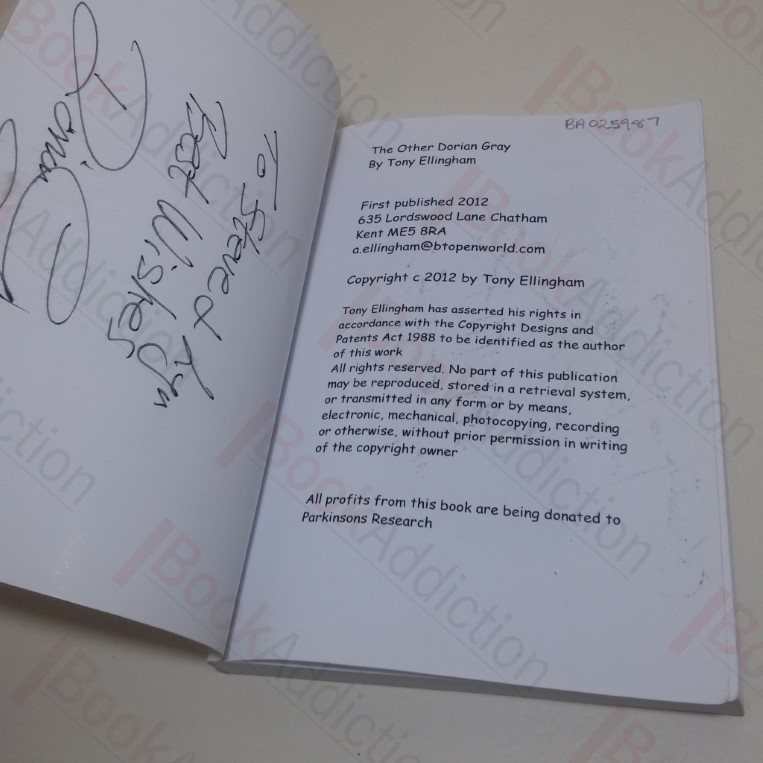 To Steve & Lyn
Best Wishes
BA025987
The Other Dorian Gray
By Tony Ellingham
First published 2012
635 Lordswood Lane Chatham
Kent ME5 8RA
a.ellingham@btopenworld.com
Copyright c 2012 by Tony Ellingham
Tony Ellingham has asserted his rights in
accordance with the Copyright Designs and
Patents Act 1988 to be identified as the author
of this work
All rights reserved. No part of this publication
may be reproduced, stored in a retrieval system,
or transmitted in any form or by means,
electronic, mechanical, photocopying, recording
or otherwise, without prior permission in writing
of the copyright owner
All profits from this book are being donated to
Parkinsons Research
BookAddiction